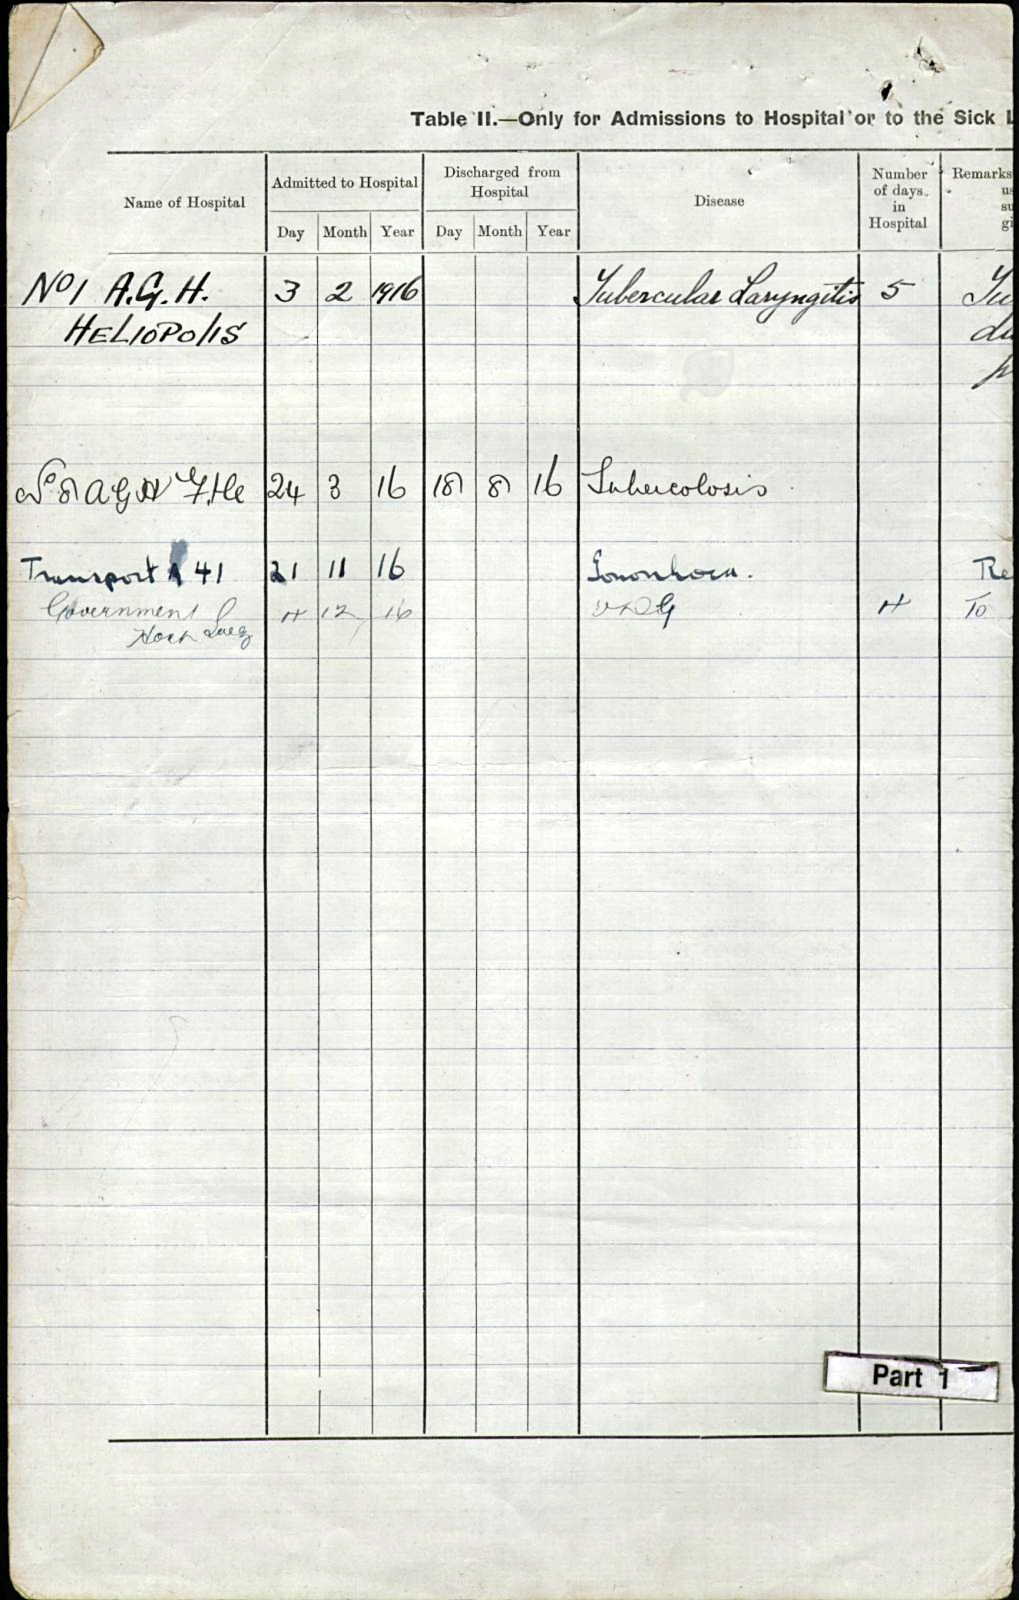 Table II.—Only for Admissions to Hospital or to the Sick
Name of Hospital
Admitted to Hospital
Discharged from
Hospital
Disease
Number
of days
in
Hospital
Remarks
Day Month Year Day Month Year
No 1 A.G.H. 3 2 1916 Tubercular Laryngitis 5
HELIOPOLIS
No 8 AGH F'tle 24 3 16 18 8 16 Tubercolosis
Transport A 41 21 11 16 Gonorrhoea.
Government 4 12 16 VDG 4 To
Hosp Suez
Part 1